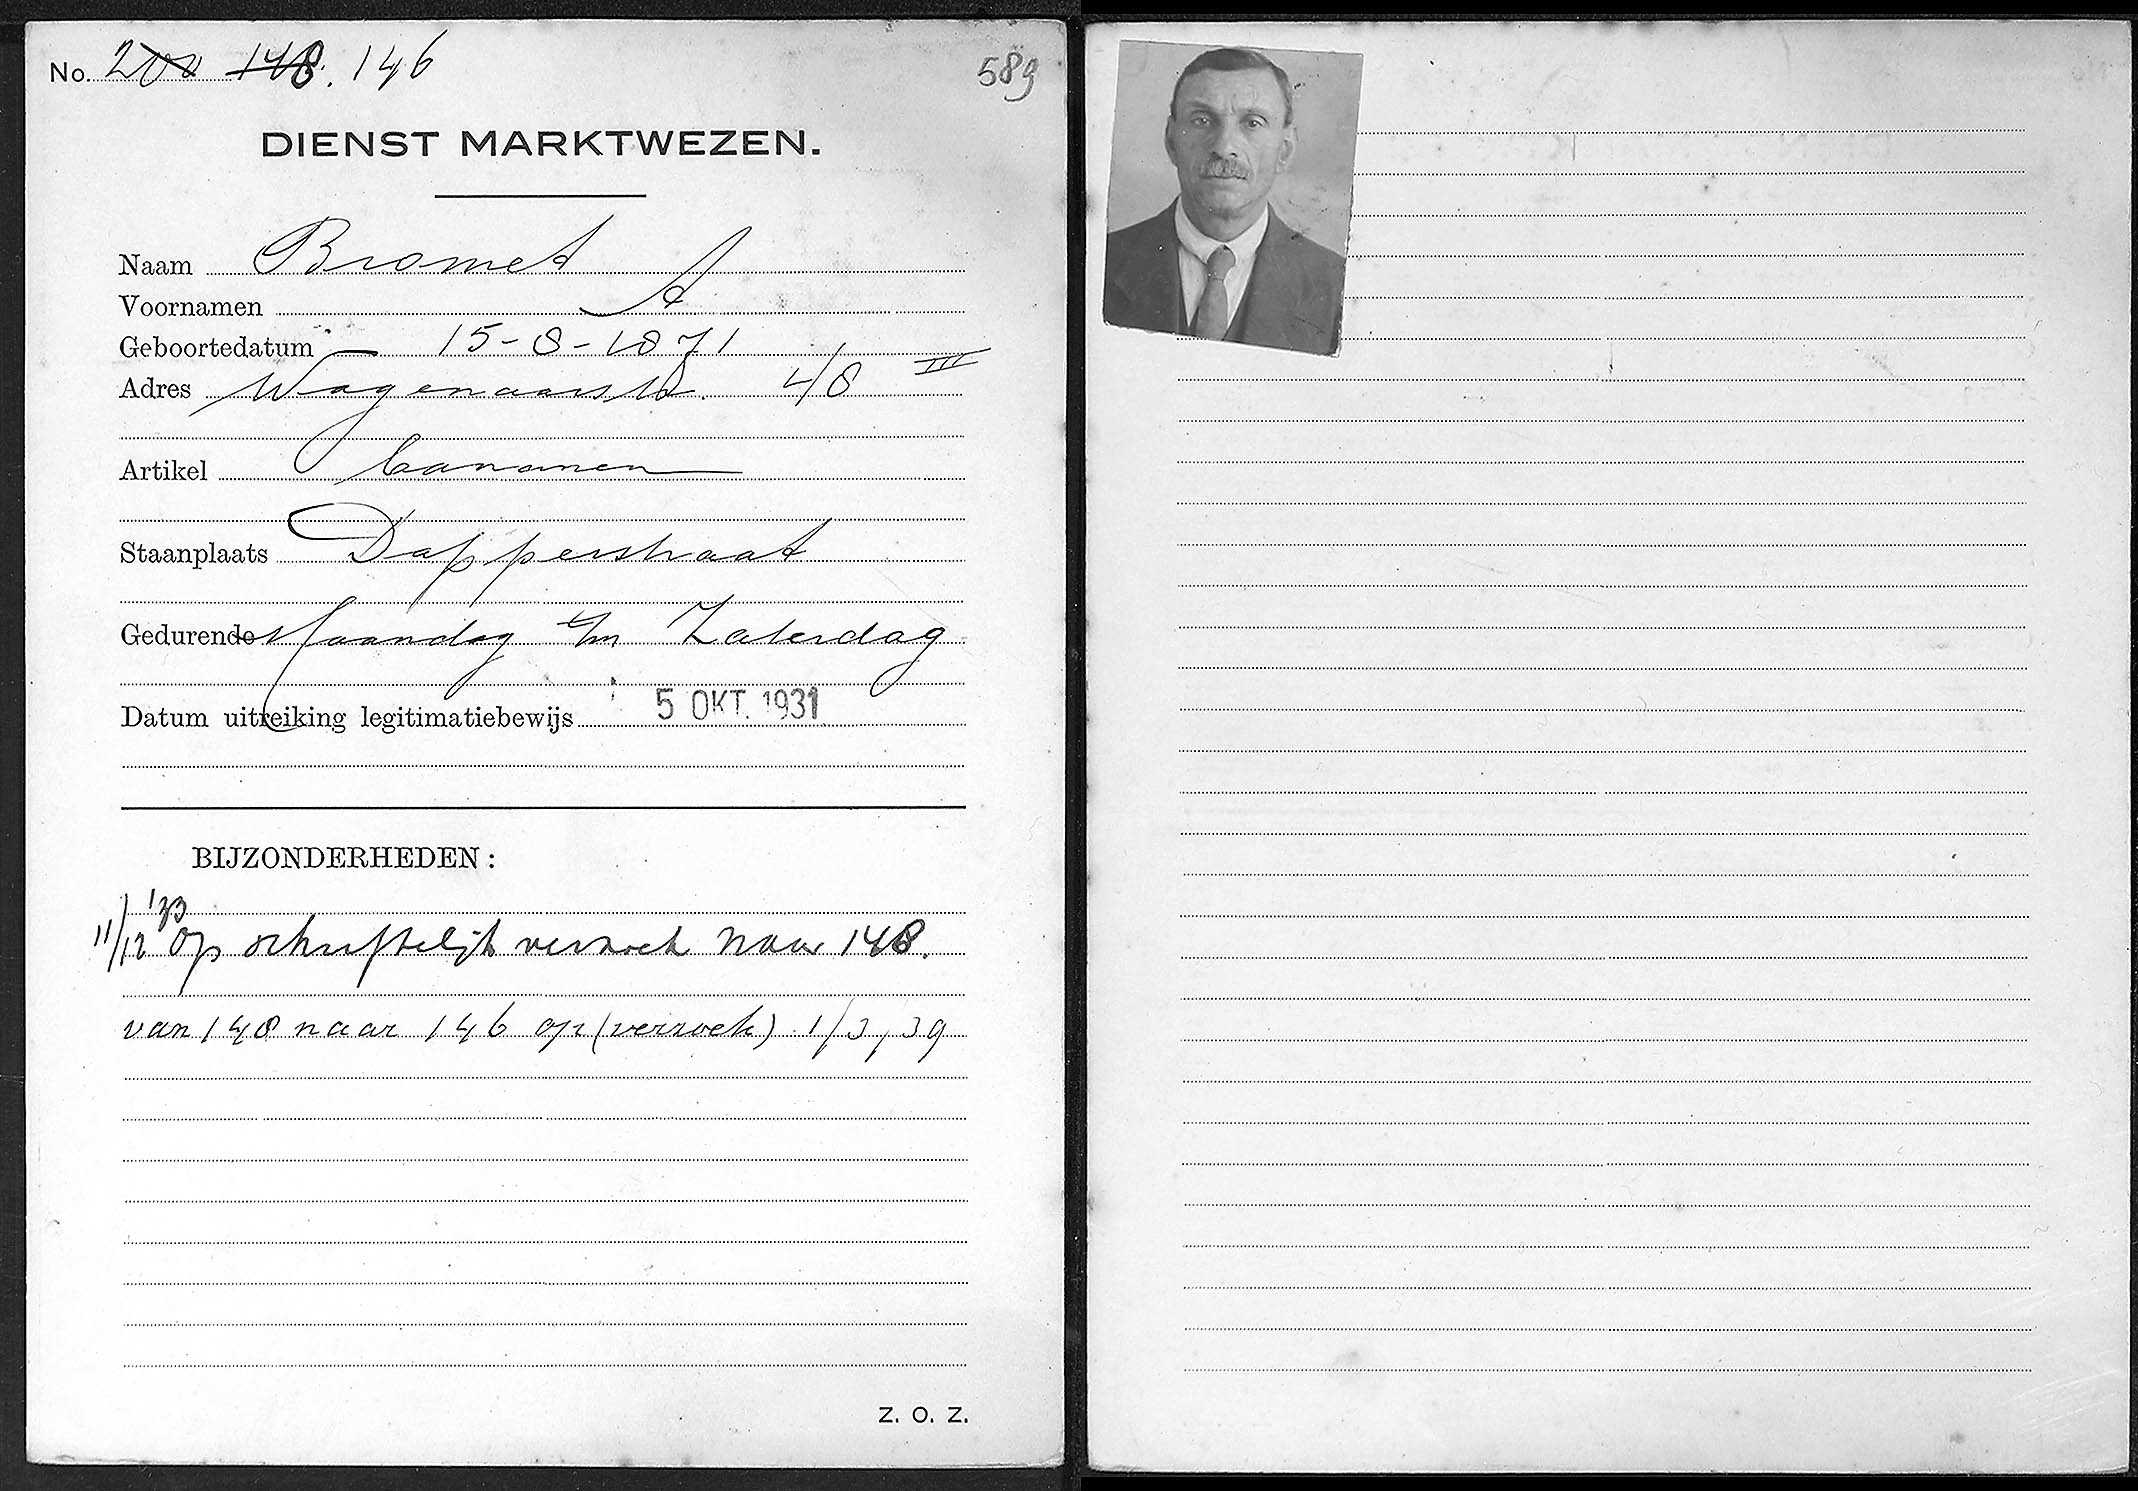 No. 200 148. 146
589
DIENST MARKTWEZEN.
Naam Bromet
Voornamen A
Geboortedatum 15-8-1871
Adres Wagenaarstr. 48 III
Artikel bananen
Staanplaats Dapperstraat
Gedurende Maandag t/m Zaterdag
Datum uitreiking legitimatiebewijs 5 OKT. 1931
BIJZONDERHEDEN:
11/12 '33 op schriftelijk verzoek naar 148.
van 148 naar 146 op (verzoek) 1/3, 39
Z. O. Z.